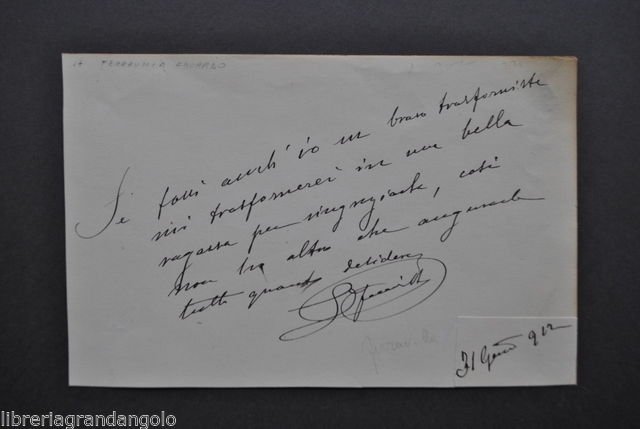 Se fossi anch'io un bravo trasformista
mi trasformerei in una bella
ragazza per ringraziarla, così
non ho altro che augurarle
tutto quanto desidera
31 Genn 912
libreriagrandangolo